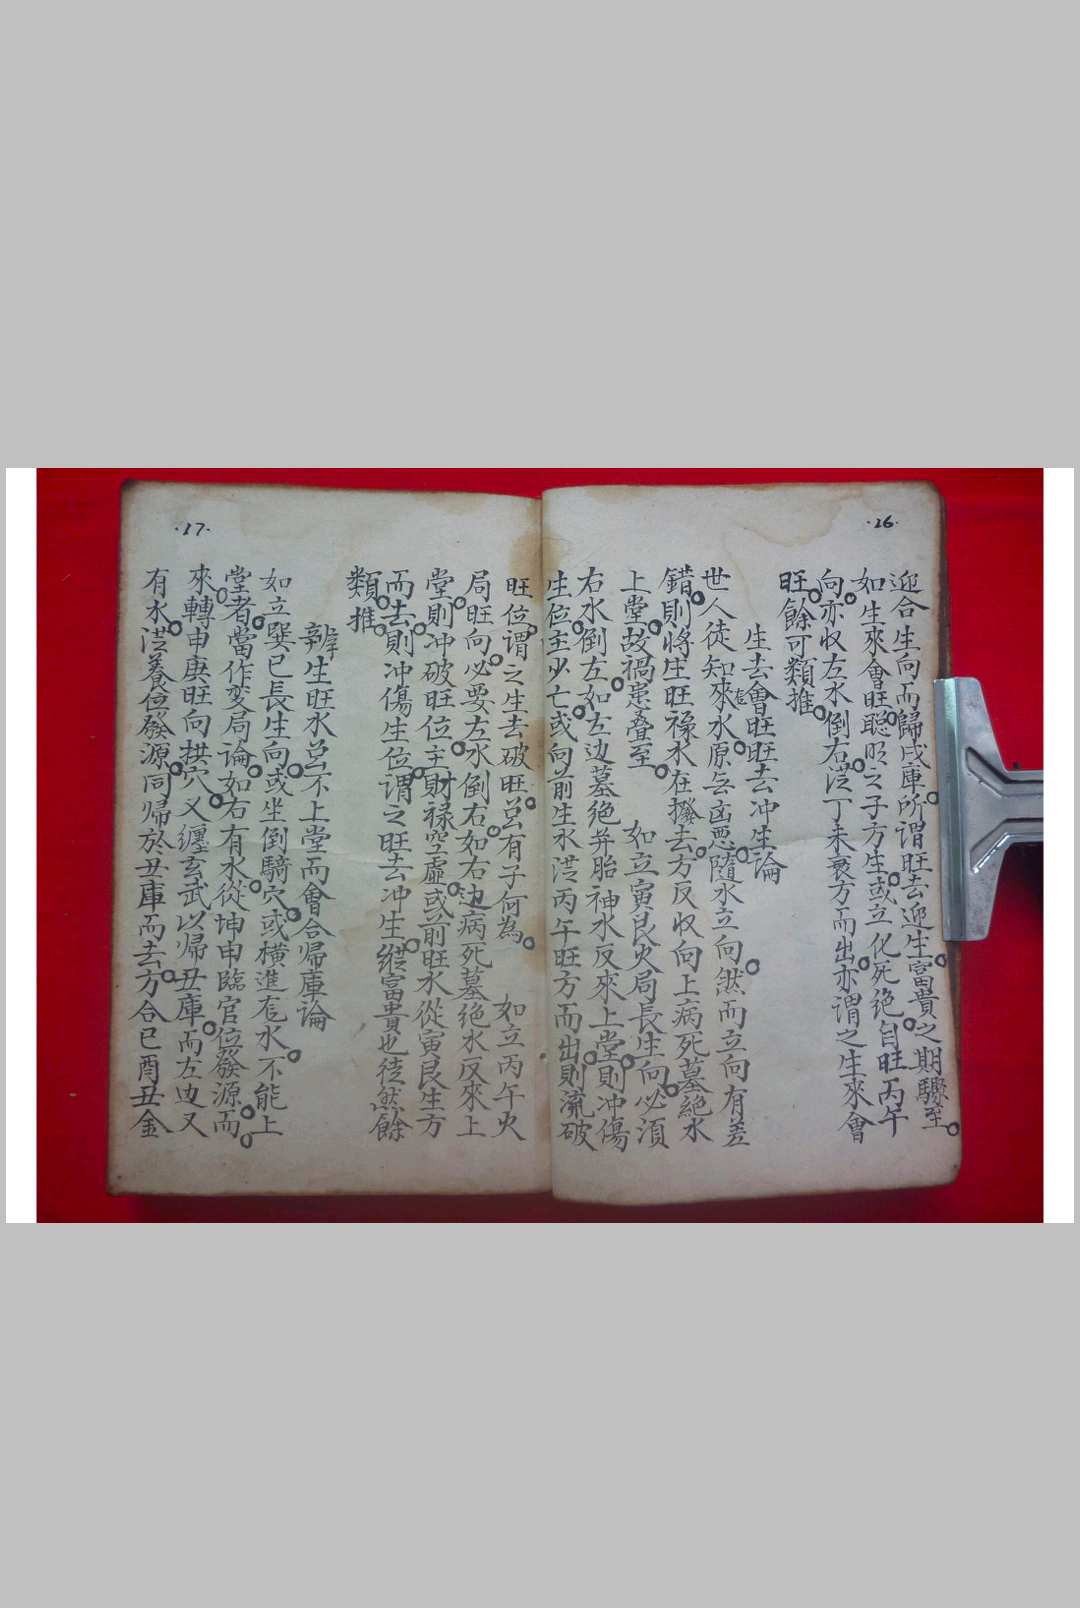 ·16·
迎合生向而歸戌庫所谓旺去迎生富貴之期驟至
如生來會旺聪明之子方生或立化死绝自旺丙午
向亦收左水倒右從丁未衰方而出亦谓之生來會
旺餘可類推
生去會旺旺去冲生論
世人徒知來水原無凶恶隨水立向然而立向有差
錯則將生旺禄水在撥去方反收向上病死墓绝水
上堂故禍患叠至 如立寅艮火局長生向必須
右水倒左如左边墓绝并胎神水反來上堂則冲傷
生位主少亡或向前生水從丙午旺方而出則流破
·17·
旺位谓之生去破旺总有子何為 如立丙午火
局旺向必要左水倒右如右边病死墓绝水反來上
堂則冲破旺位主财禄空虛或前旺水從寅艮生方
而去則冲傷生位谓之旺去冲生縱富貴也徒然餘
類推
辨生旺水总不上堂而會合歸庫論
如立巽巳長生向或坐倒騎穴或横進龙水不能上
堂者當作变局論如右有水從坤申臨官位發源而
來轉申庚旺向拱穴又纏玄武以歸丑庫而左边又
有水從養位發源同歸於丑庫而去方合巳酉丑金